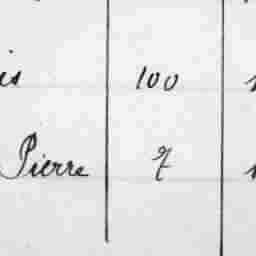 is 100
Pierre 7